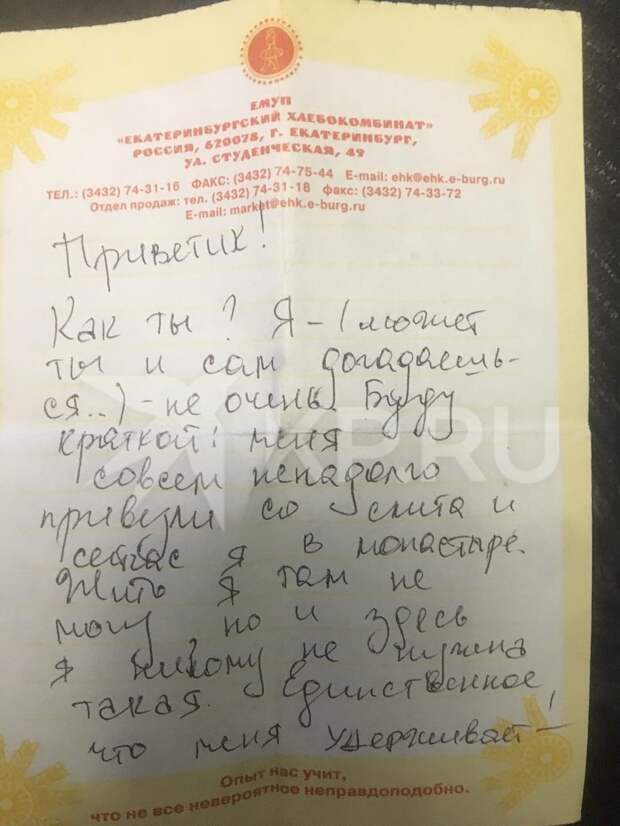 ЕМУП
"ЕКАТЕРИНБУРГСКИЙ ХЛЕБОКОМБИНАТ"
РОССИЯ, 620078, Г. ЕКАТЕРИНБУРГ,
УЛ. СТУДЕНЧЕСКАЯ, 49
ТЕЛ.: (3432) 74-31-16 ФАКС: (3432) 74-75-44 E-mail: ehk@ehk.e-burg.ru
Отдел продаж: тел. (3432) 74-31-18 факс: (3432) 74-33-72
E-mail: market@ehk.e-burg.ru
Приветик!
Как ты? Я - (может
ты и сам догадаешь-
ся..) - не очень. Буду
краткой: меня
совсем ненадолго
привезли со скита и
сейчас я в монастыре.
Жить я там не
могу но и здесь
я никому не нужна
такая. Единственное,
что меня удерживает -
KP.RU
Опыт нас учит,
что не все невероятное неправдоподобно.